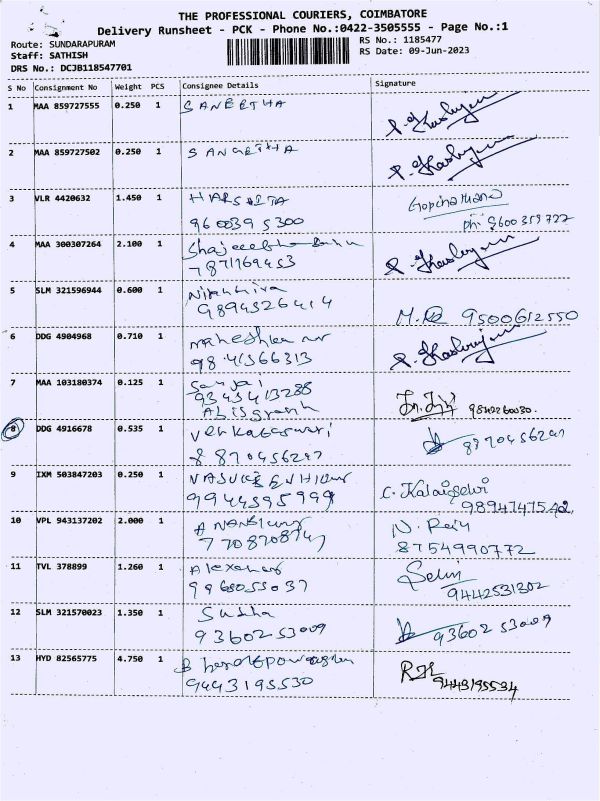 THE PROFESSIONAL COURIERS, COIMBATORE
Delivery Runsheet - PCK - Phone No.:0422-3505555 - Page No.:1
Route: SUNDARAPURAM
Staff: SATHISH
DRS No.: DCJB118547701
RS No.: 1185477
RS Date: 09-Jun-2023
S No Consignment No Weight PCS Consignee Details Signature
1 MAA 859727555 0.250 1
2 MAA 859727502 0.250 1 SANGEETHA
3 VLR 4420632 1.450 1 Gopinathan
9600395300 ph: 9600359722
4 MAA 300307264 2.100 1
7871769453
5 SLM 321596944 0.600 1
9894526414 9500612550
6 DDG 4904968 0.710 1
9841566313
7 MAA 103180374 0.125 1 Sanjai
9345413288 9842260030.
8 DDG 4916678 0.535 1 Venkateswari
8870456247 8870456247
9 IXM 503847203 0.250 1 C. Kalaiselvi
9944595999 9894747542
10 VPL 943137202 2.000 1
8754990772
11 TVL 378899 1.260 1 Alexander Selvi
9968055037 9442531302
12 SLM 321570023 1.350 1 Sudha
9360253009 9360253009
13 HYD 82565775 4.750 1
9443195530 9443195534